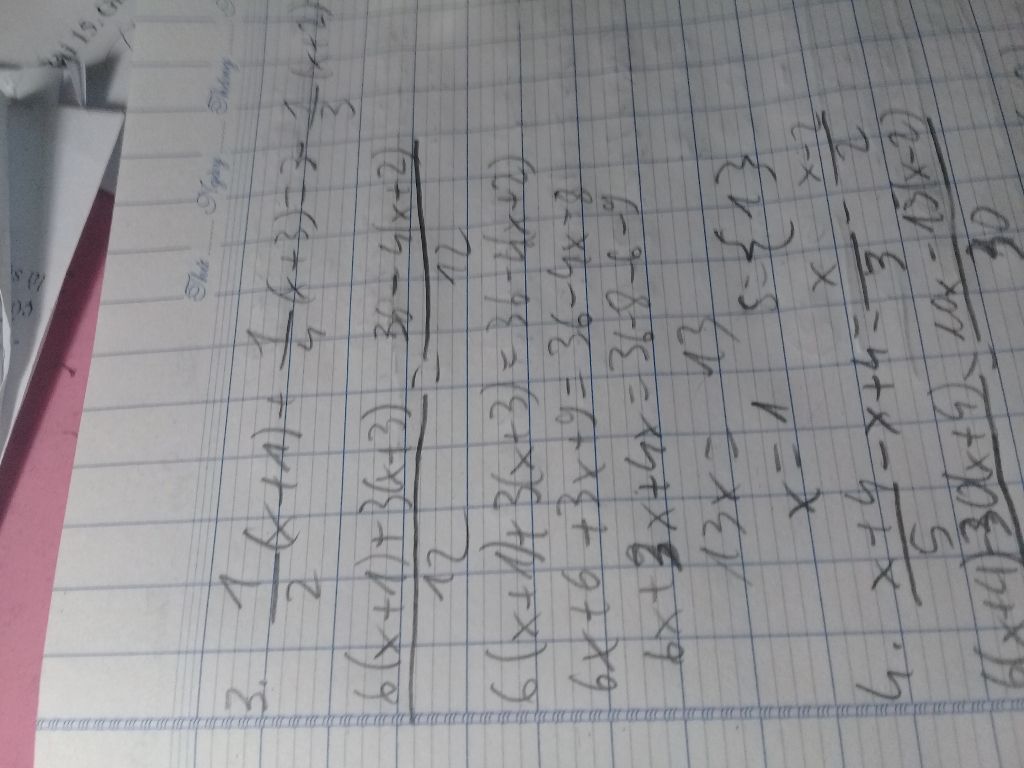 Thứ Ngày Tháng
3. 1/2 (x+1) + 1/4 (x+3) = 3 - 1/3 (x+2)
6(x+1)+3(x+3)/12 = 36-4(x+2)/12
6(x+1)+3(x+3) = 36-4(x+2)
6x+6+3x+9 = 36-4x-8
6x+3x+4x = 36-8-6-9
13x = 13
x = 1 S={1}
4. x+4/5 - x+4 = x/3 - x-2/2
6(x+4)-30(x+4) = 10x-15(x-2)/30